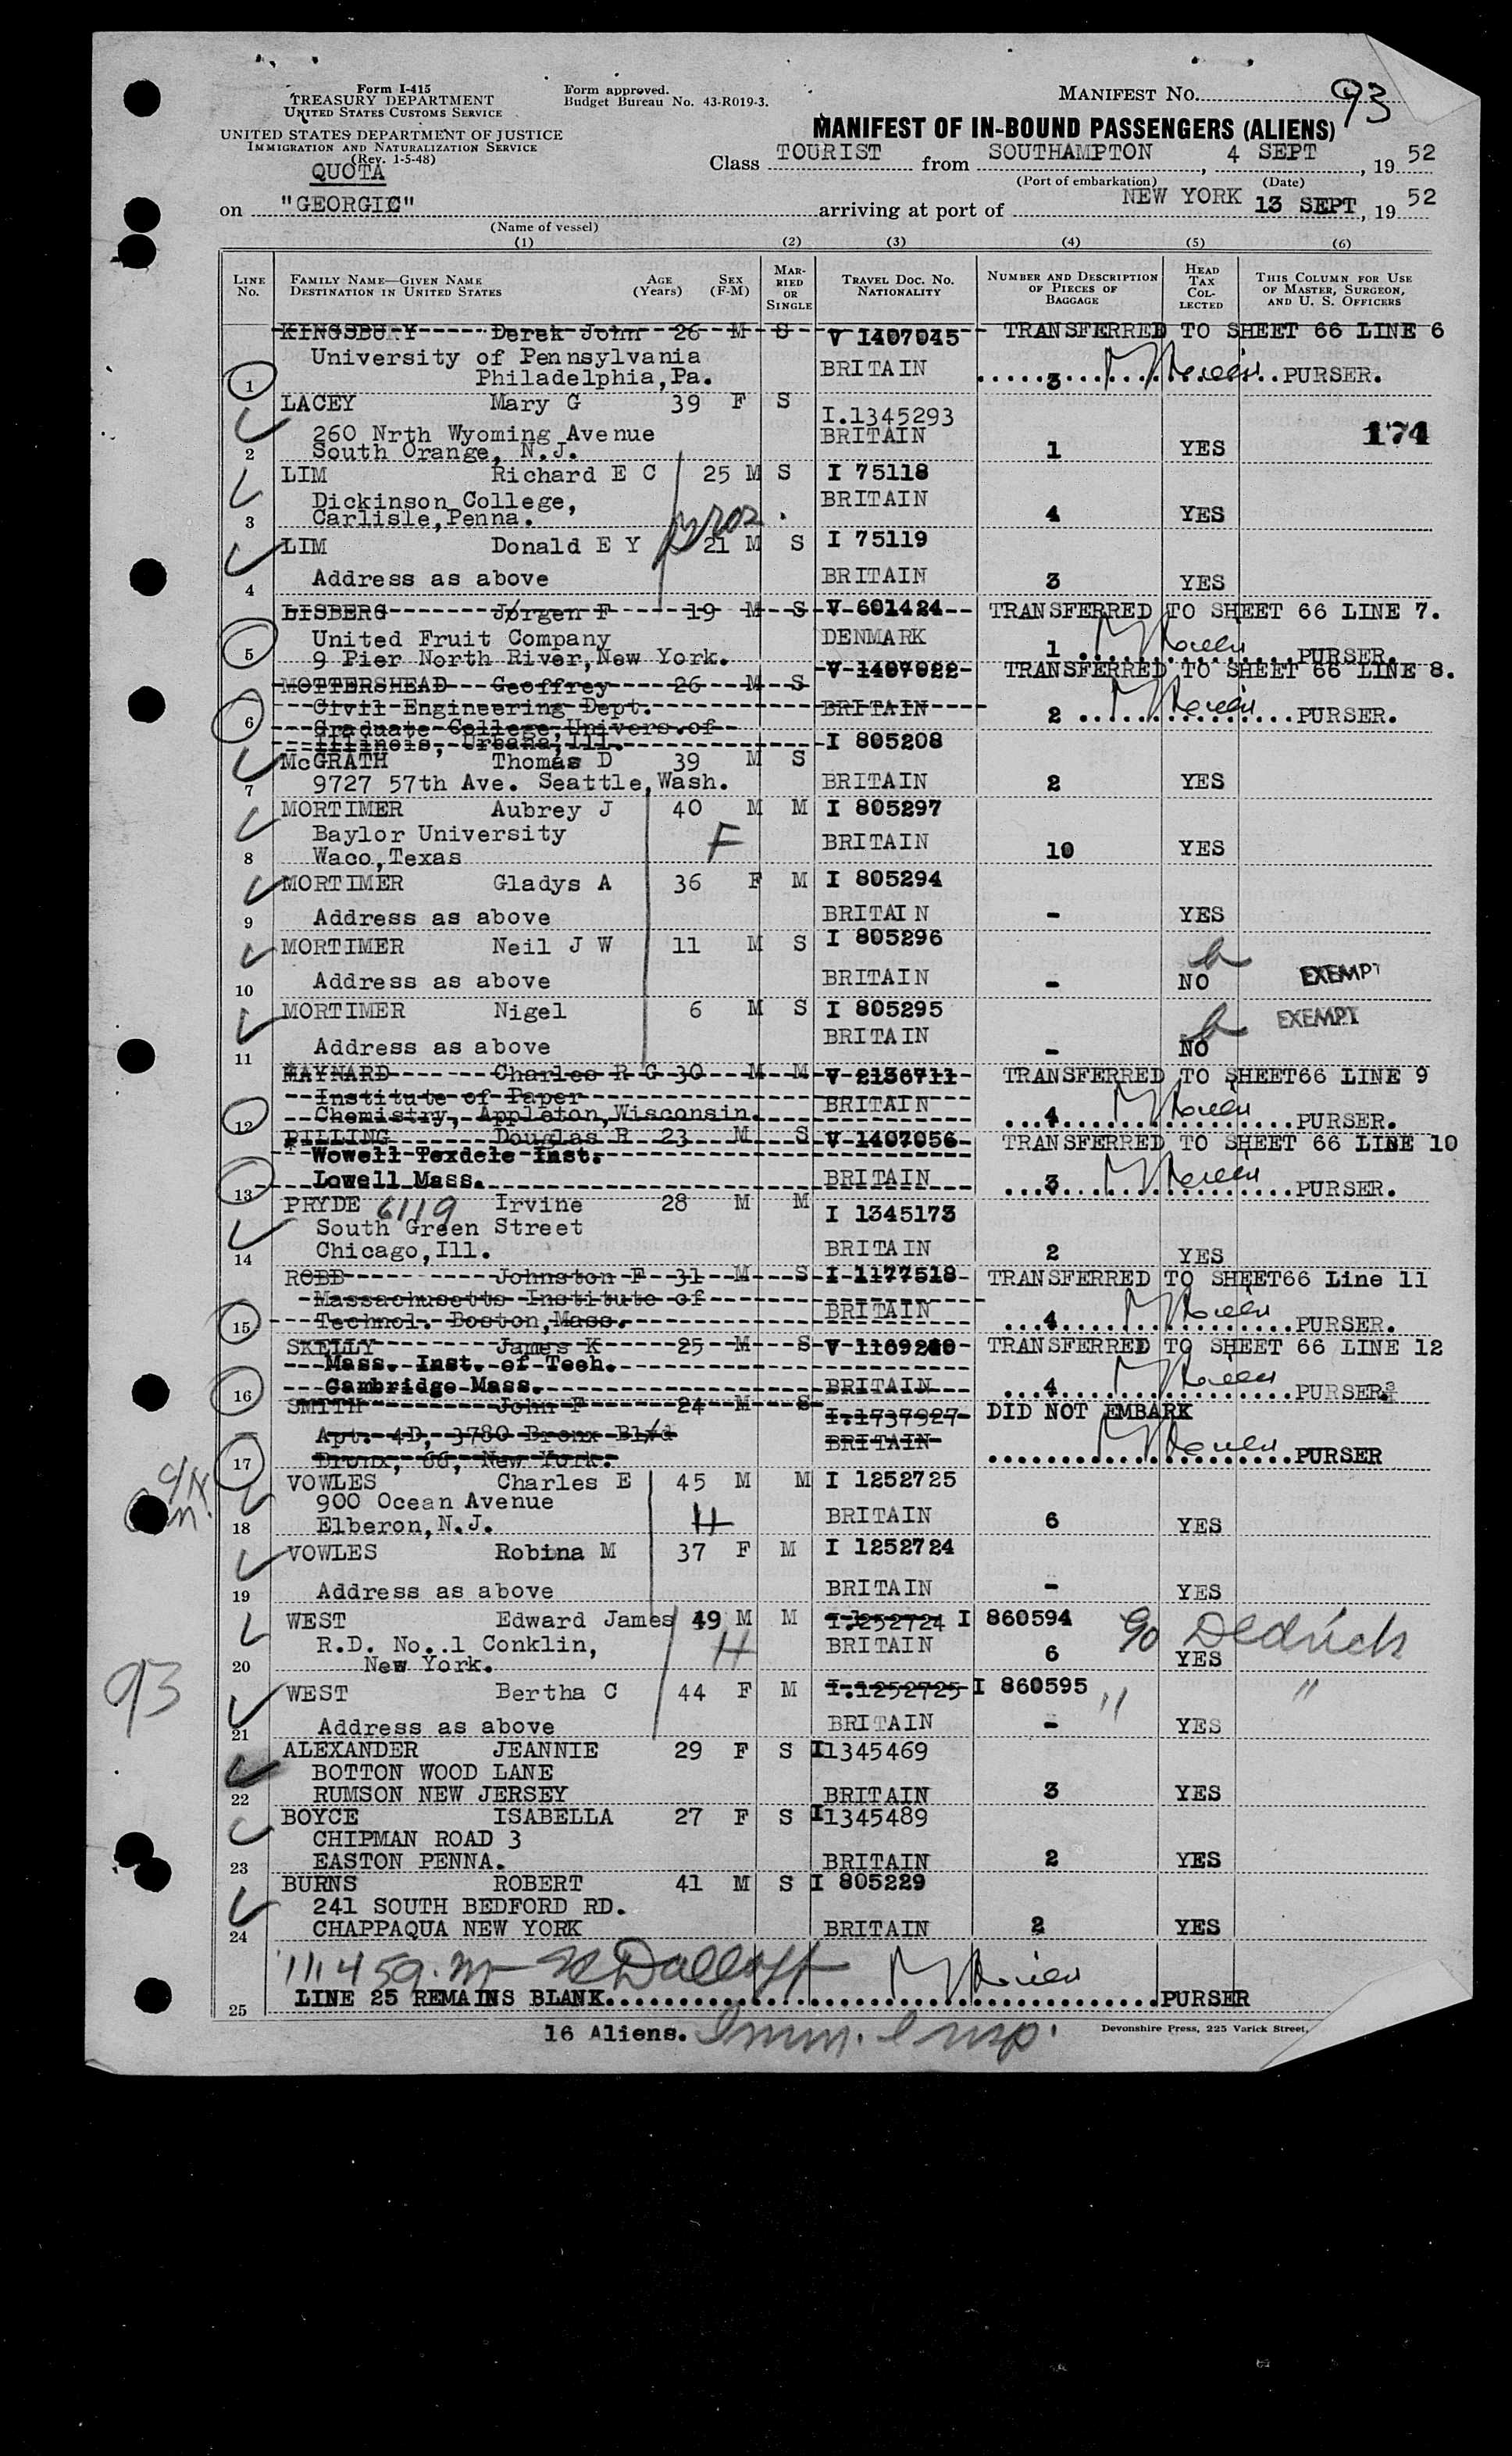 Form I-415
TREASURY DEPARTMENT
UNITED STATES CUSTOMS SERVICE
UNITED STATES DEPARTMENT OF JUSTICE
IMMIGRATION AND NATURALIZATION SERVICE
(Rev. 1-5-48)
QUOTA
Form approved.
Budget Bureau No. 43-R019-3.
MANIFEST NO. 93
MANIFEST OF IN-BOUND PASSENGERS (ALIENS)
Class TOURIST from SOUTHAMPTON, 4 SEPT, 19 52
(Port of embarkation) (Date)
on "GEORGIC" arriving at port of NEW YORK 13 SEPT, 19 52
(Name of vessel)
(1) (2) (3) (4) (5) (6)
LINE No. FAMILY NAME—GIVEN NAME DESTINATION IN UNITED STATES AGE (Years) SEX (F-M) MARRIED OR SINGLE TRAVEL DOC. NO. NATIONALITY NUMBER AND DESCRIPTION OF PIECES OF BAGGAGE HEAD TAX COLLECTED THIS COLUMN FOR USE OF MASTER, SURGEON, AND U. S. OFFICERS
KINGSBURY Derek John 26 M S V 1407045 TRANSFERRED TO SHEET 66 LINE 6
University of Pennsylvania BRITAIN
1 Philadelphia, Pa. 3 PURSER.
LACEY Mary G 39 F S I.1345293
260 Nrth Wyoming Avenue BRITAIN 174
2 South Orange, N.J. 1 YES
LIM Richard E C 25 M S I 75118
Dickinson College, BRITAIN
3 Carlisle, Penna. 4 YES
Bros.
LIM Donald E Y 21 M S I 75119
4 Address as above BRITAIN 3 YES
LISBERG Jørgen F 19 M S V 601424 TRANSFERRED TO SHEET 66 LINE 7.
United Fruit Company DENMARK
5 9 Pier North River, New York. 1 PURSER.
MOTTERSHEAD Geoffrey 26 M S V 1407022 TRANSFERRED TO SHEET 66 LINE 8.
Civil Engineering Dept. BRITAIN
6 Graduate College, Univers. of 2 PURSER.
Illinois, Urbana, Ill.
McGRATH Thomas D 39 M S I 805208
7 9727 57th Ave. Seattle, Wash. BRITAIN 2 YES
MORTIMER Aubrey J 40 M M I 805297
Baylor University F BRITAIN
8 Waco, Texas 10 YES
MORTIMER Gladys A 36 F M I 805294
9 Address as above BRITAIN - YES
MORTIMER Neil J W 11 M S I 805296
10 Address as above BRITAIN - NO EXEMPT
MORTIMER Nigel 6 M S I 805295 EXEMPT
11 Address as above BRITAIN - NO
MAYNARD Charles R G 30 M M V 2136711 TRANSFERRED TO SHEET66 LINE 9
Institute of Paper BRITAIN
12 Chemistry, Appleton, Wisconsin. 4 PURSER.
PILLING Douglas R 23 M S V 1407056 TRANSFERRED TO SHEET 66 LINE 10
Wowell Texdele Inst.
13 Lowell Mass. BRITAIN 3 PURSER.
PRYDE 6119 Irvine 28 M M I 1345173
South Green Street
14 Chicago, Ill. BRITAIN 2 YES
ROBB Johnston F 31 M S I 1177518 TRANSFERRED TO SHEET66 Line 11
Massachusetts Institute of BRITAIN
15 Technol. Boston, Mass. 4 PURSER.
SKELLY James K 25 M S TRANSFERRED TO SHEET 66 LINE 12
Mass. Inst. of Tech.
16 Cambridge Mass. BRITAIN 4 PURSER.
SMITH John F 24 M S I.1737927 DID NOT EMBARK
Apt. 4D, 3780 Bronx Blvd BRITAIN
17 Bronx, 66, New York. PURSER
VOWLES Charles E 45 M M I 1252725
900 Ocean Avenue H BRITAIN
18 Elberon, N.J. 6 YES
VOWLES Robina M 37 F M I 1252724
19 Address as above BRITAIN - YES
WEST Edward James 49 M M I.252724 I 860594
R.D. No..1 Conklin, H BRITAIN Dedrick
20 New York. 6 YES
93
WEST Bertha C 44 F M I.1252725 I 860595 " "
21 Address as above BRITAIN - YES
ALEXANDER JEANNIE 29 F S I1345469
BOTTON WOOD LANE
22 RUMSON NEW JERSEY BRITAIN 3 YES
BOYCE ISABELLA 27 F S I1345489
CHIPMAN ROAD 3
23 EASTON PENNA. BRITAIN 2 YES
BURNS ROBERT 41 M S I 805229
241 SOUTH BEDFORD RD.
24 CHAPPAQUA NEW YORK BRITAIN 2 YES
25 LINE 25 REMAINS BLANK PURSER
16 Aliens. Imm. Insp.
Devonshire Press, 225 Varick Street,